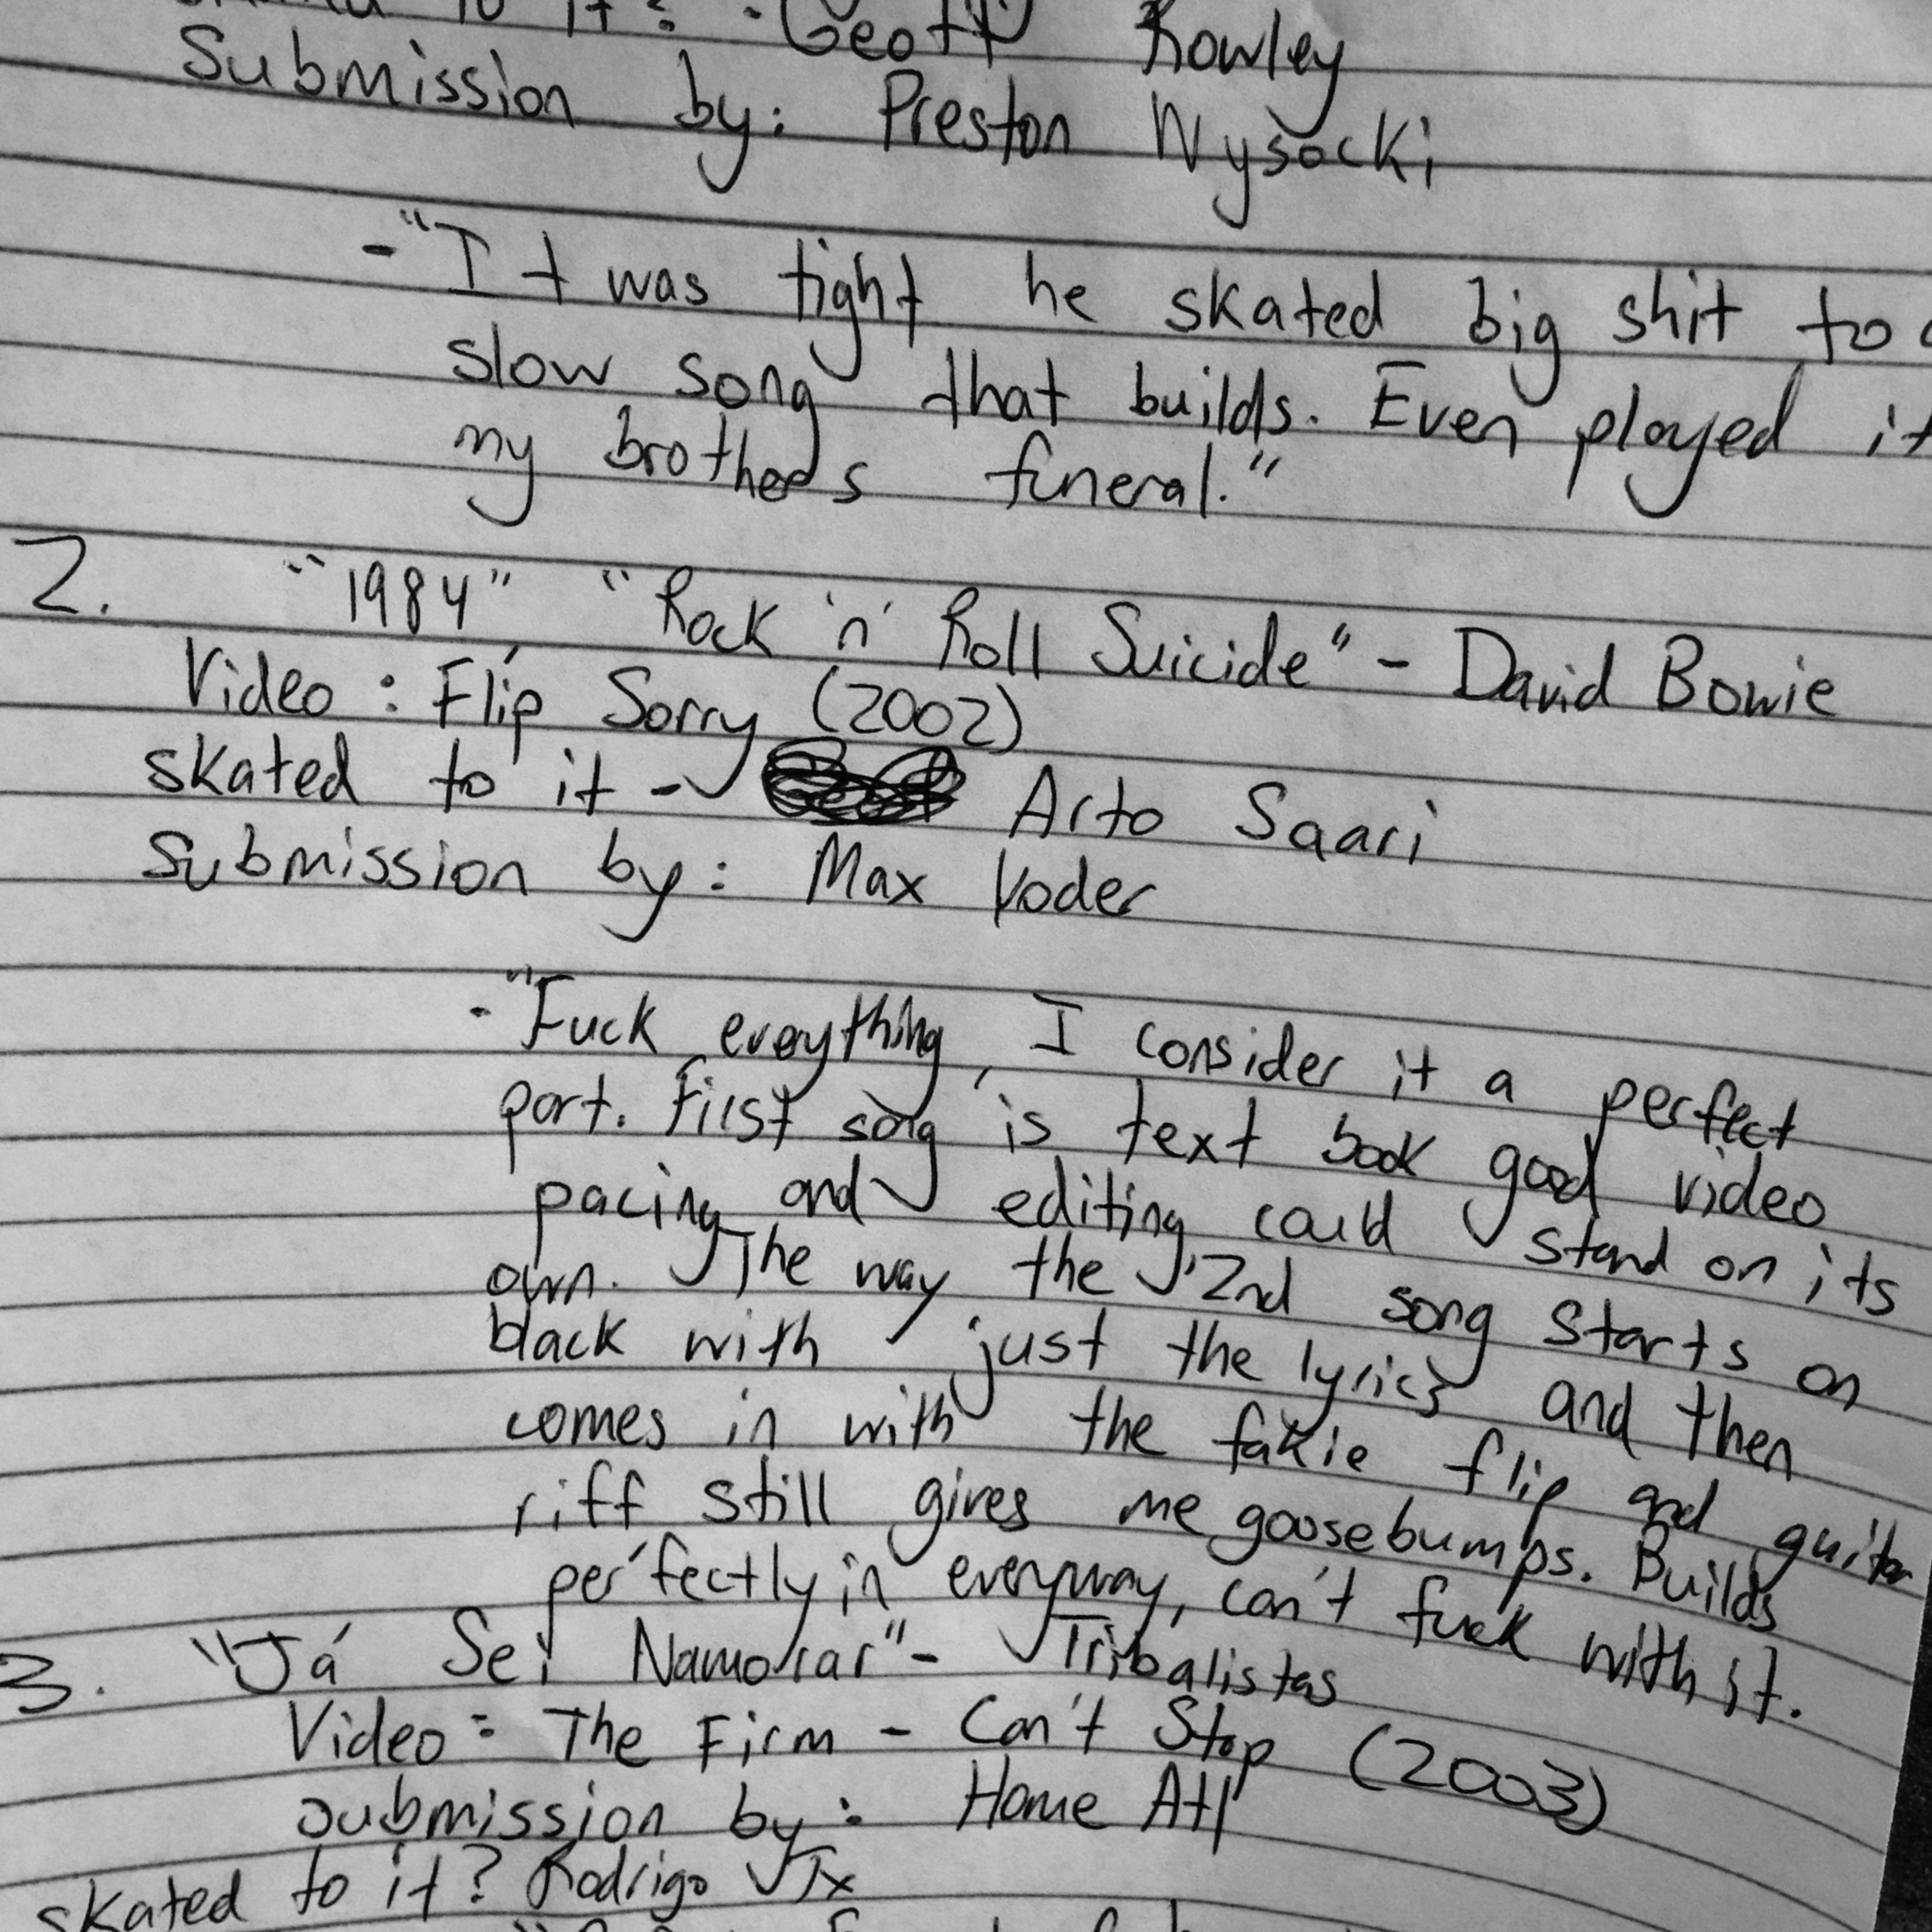 to it? - Geoff Rowley
Submission by: Preston Wysocki
- "It was tight he skated big shit to
slow song that builds. Even played it
my brothers funeral."
2. "1984" "Rock 'n' Roll Suicide" - David Bowie
Video: Flip Sorry (2002)
skated to it - Arto Saari
Submission by: Max Yoder
- "Fuck everything, I consider it a perfect
part. First song is text book good video
pacing and editing, could stand on its
own. The way the 2nd song starts on
black with just the lyrics and then
comes in with the fakie flip and guitar
riff still gives me goosebumps. Builds
perfectly in everyway, can't fuck with it.
3. "Já Sei Namorar" - Tribalistas
Video: The Firm - Can't Stop (2003)
submission by: Home Atl
skated to it? Rodrigo Tx